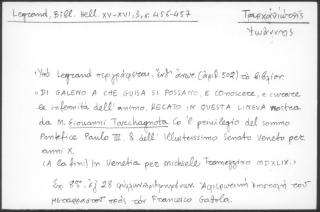 Legrand, Bibl. Hell. XV-XVI, 3, σ. 456-457
Ταρχανιώτης
Ἰωάννης
Ὑπὸ Legrand περιγράφεται, ὑπ' ἀριθ. 502) τὸ βιβλίον:
"DI GALENO A CHE GUISA SI POSSANO, E CONOSCERE, E CURARE
LE infermità dell'animo, RECATO IN QUESTA LINGUA nostra
da M. Giovanni Tarchagnota Co 'l privilegio del sommo
Pontefice Paulo III. & dell' Illustrissimo Senato Veneto per
anni X.
(A la fin) In Venetia per Michiele Tramezzino MDXLIX."
Σχ. 8°. ἐξ 28 φύλλων ἀριθμημένων. Ἀφιέρωσις τοῦ
μεταφραστοῦ πρὸς τὸν Francesco Gazola.